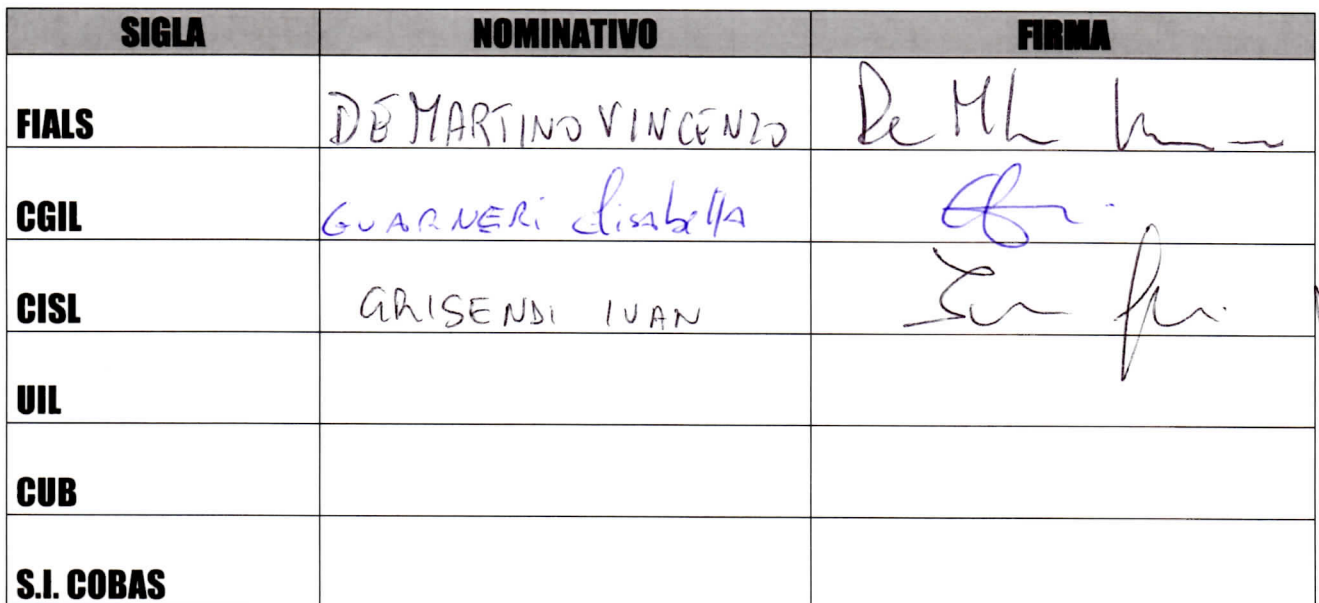 SIGLA NOMINATIVO FIRMA
FIALS DE MARTINO VINCENZO De
CGIL GUARNERI Elisabetta
CISL GRISENDI IVAN
UIL
CUB
S.I. COBAS